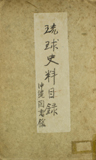 琉球史料目録
沖縄図書館